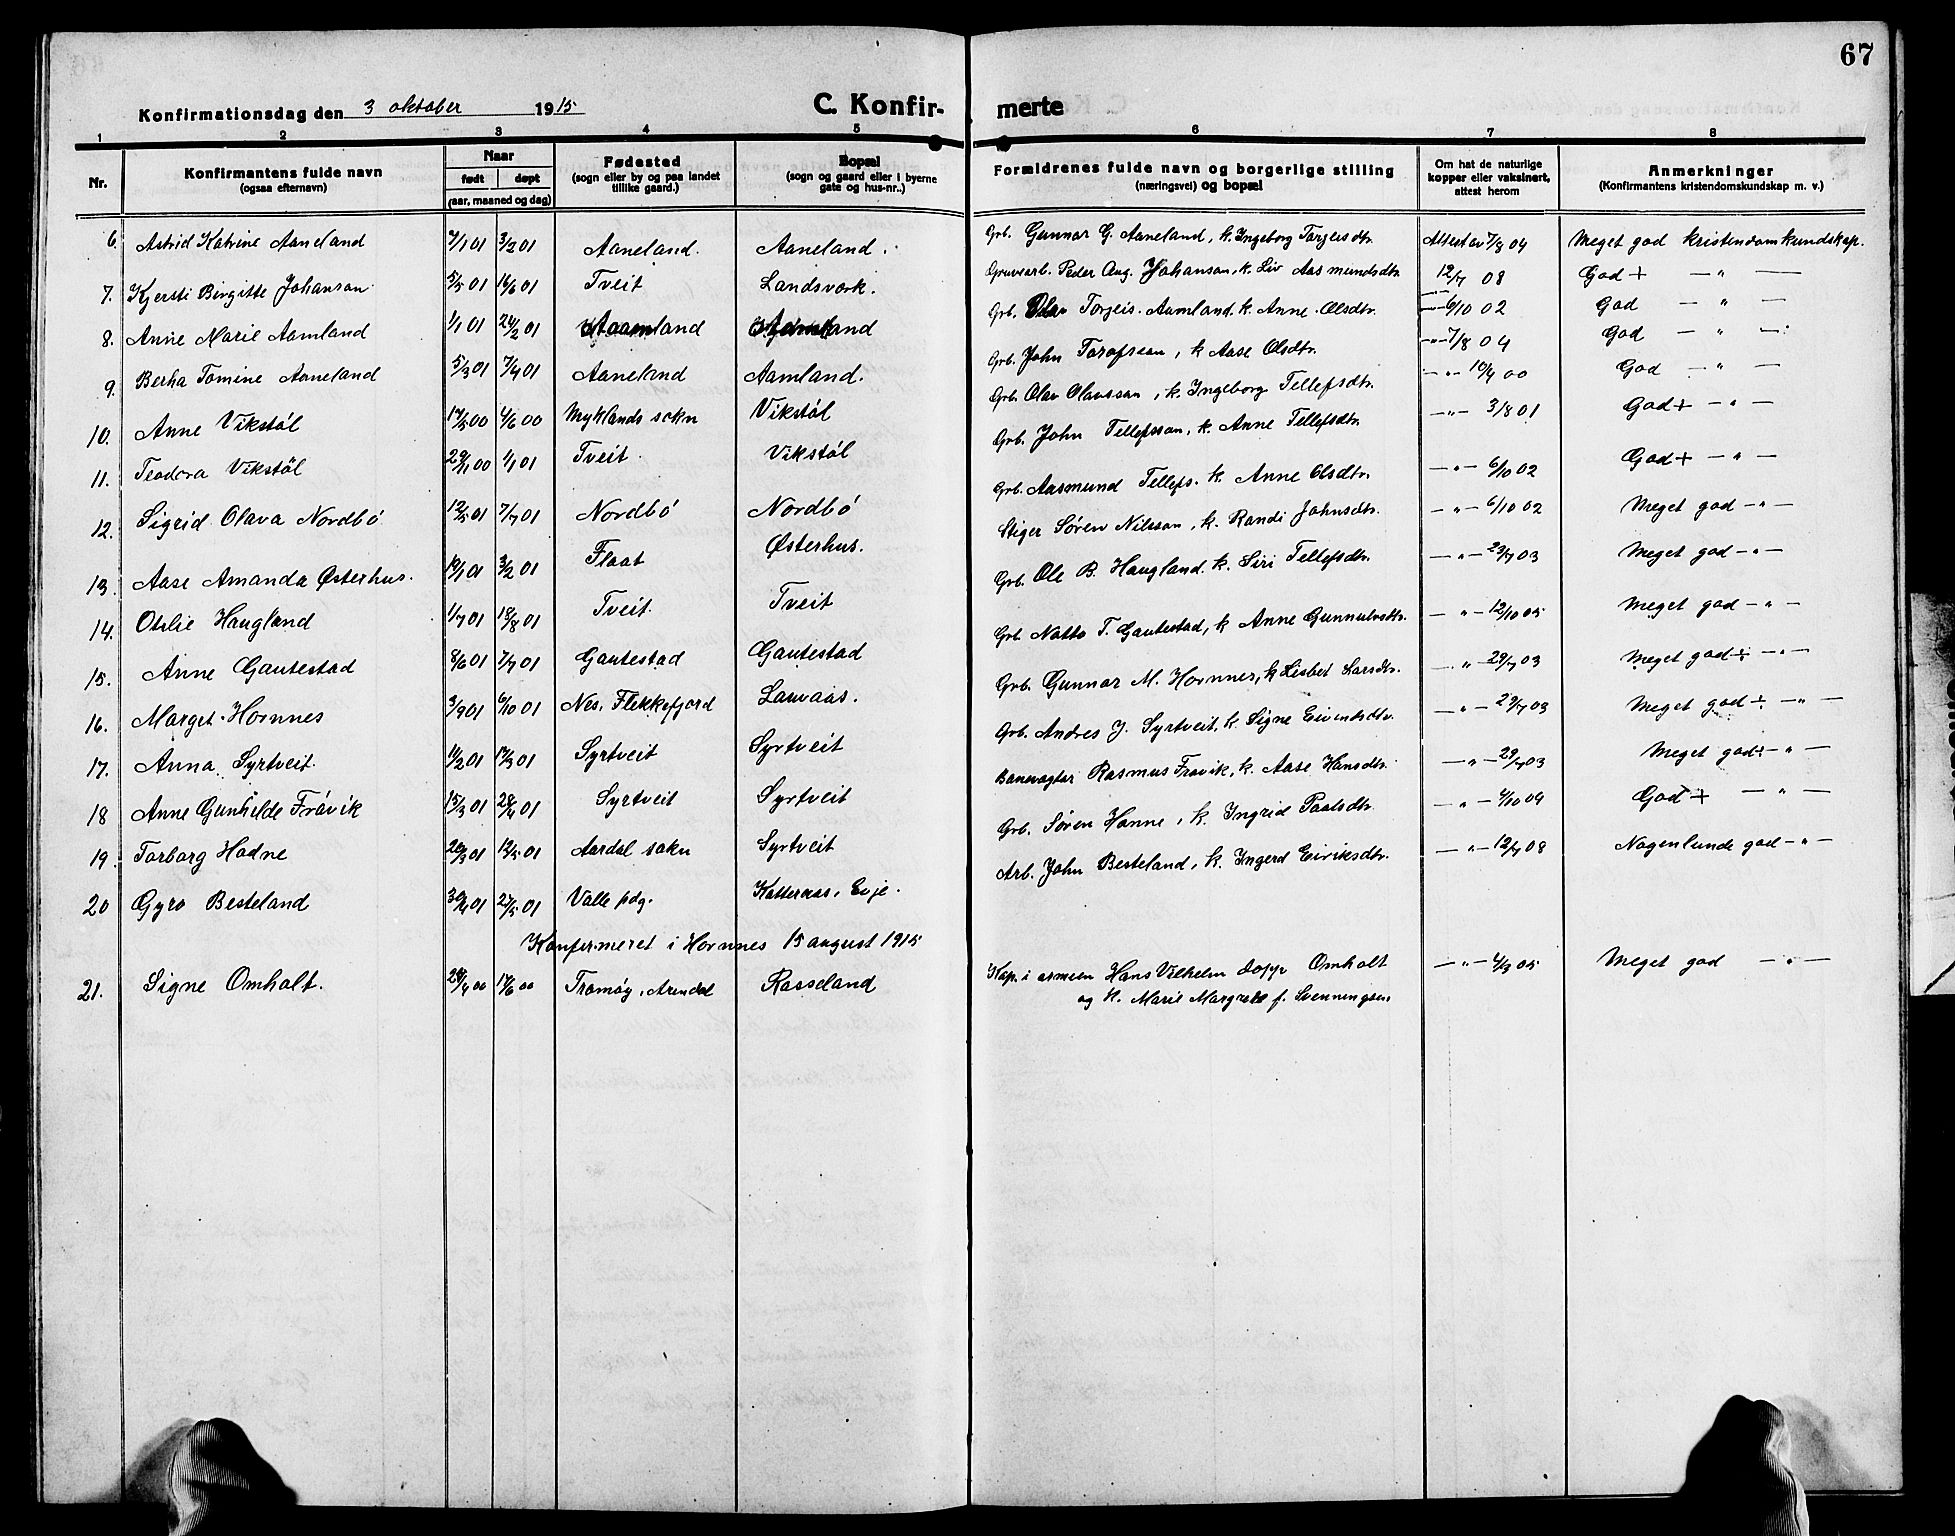 67
Konfirmationsdag den 3 oktober 1915 C. Konfir- merte
1 2 3 4 5 6 7 8
Nr. Konfirmantens fulde navn (ogsaa efternavn) Naar født døpt (aar, maaned og dag) Fødested (sogn eller by og paa landet tillike gaard.) Bopæl (sogn og gaard eller i byerne gate og hus-nr..) Forældrenes fulde navn og borgerlige stilling (næringsvei) og bopæl Om hat de naturlige kopper eller vaksinert, attest herom Anmerkninger (Konfirmantens kristendomskundskap m. v.)
6. Astrid Katrine Aaneland 7/1 01 3/2 01 Aaneland. Aaneland. Grb. Gunnar G. Aaneland, k. Ingeborg Torjeisdtr. Attest av 7/8 04 Meget god kristendomkundskap.
7. Kjersti Birgitte Johanson 5/5 01 16/6 01 Tveit Landsværk. Gruvearb. Peder Aug. Johanson, k. Liv Aasmundsdtr 12/7 08 God + — " —
8. Anne Marie Aamland 1/1 01 24/2 01 Aamland Aamland Grb. Olav Torjeis. Aamland, k. Anne Olsdtr. — 6/10 02 God — " —
9. Berha Tomine Aaneland 5/3 01 7/4 01 Aaneland Aamland. Grb. John , k Aase Olsdtr. — " — 7/8 04 God — " —
10. Anne Vikstøl 14/5 00 4/6 00 Myklands sokn Vikstøl Grb. Olav Olavsson, k. Ingeborg Tellefsdtr. — " — 10/4 00 God — " —
11. Teodora Vikstøl 29/1 00 1/1 01 Tveit Vikstøl Grb. John Tellefsson, k. Anne Tellefsdtr. — " — 3/8 01 God + — " —
12. Sigrid Olava Nordbø 12/5 01 7/7 01 Nordbø Nordbø Grb. Aasmund Tellefs. k. Anne Olsdtr. — " — 6/10 02 God + — " —
13. Aase Amanda Østerhus. 10/1 01 3/2 01 Flaat Østerhus. Stiger Søren Nilsson, k. Randi Johnsdtr. — " — 6/10 02 Meget god — " —
14. Otilie Haugland 1/7 01 18/8 01 Tveit Tveit Grb. Ole B. Haugland. k. Siri Tellefsdtr. — " — 23/7 03 Meget god — " —
15. Anne Gautestad 8/6 01 7/7 01 Gautestad Gautestad Grb. T. Gautestad, k. Anne Gunnulvsdtr. — " — 12/10 05 Meget god — " —
16. Marget Hornnes 3/9 01 6/10 01 Nes, Flekkefjord Lauvaas. Grb. Gunnar M. Hornnes, k Lisbet Larsdtr. — " — 29/7 03 Meget god ÷ — " —
17. Anna Syrtveit. 11/2 01 17/3 01 Syrtveit Syrtveit Grb. Andres J. Syrtveit, k. Signe Eivindsdtr. — " — 29/7 03 Meget god ÷ — " —
18 Anne Gunhilde Frøvik 15/3 01 28/4 01 Syrtveit Syrtveit Banevogter Rasmus Frøvik, k. Aase Hansdtr. — " — 29/7 03 Meget god ÷ — " —
19. Torborg Hodne 20/3 01 12/5 01 Aardal sokn Syrtveit Grb. Søren , k. Ingrid Paalsdtr. — " — 4/10 09 God + — " —
20 Gyro Besteland 30/4 01 27/5 01 Valle pdg. Katteraas, Evje. Arb. John Besteland, k. Ingerd Eiriksdtr. — " — 12/7 08 Nogenlunde god — " —
Konfirmeret i Hornnes 15 august 1915
21. Signe Omholt. 24/4 00 17/6 00 Tromøy, Arendal Rosseland Kap. i armeen Hans Vilhelm Omholt — " — 4/3 05 Meget god — " —
og k. Marie Margrete f. Svenningsen